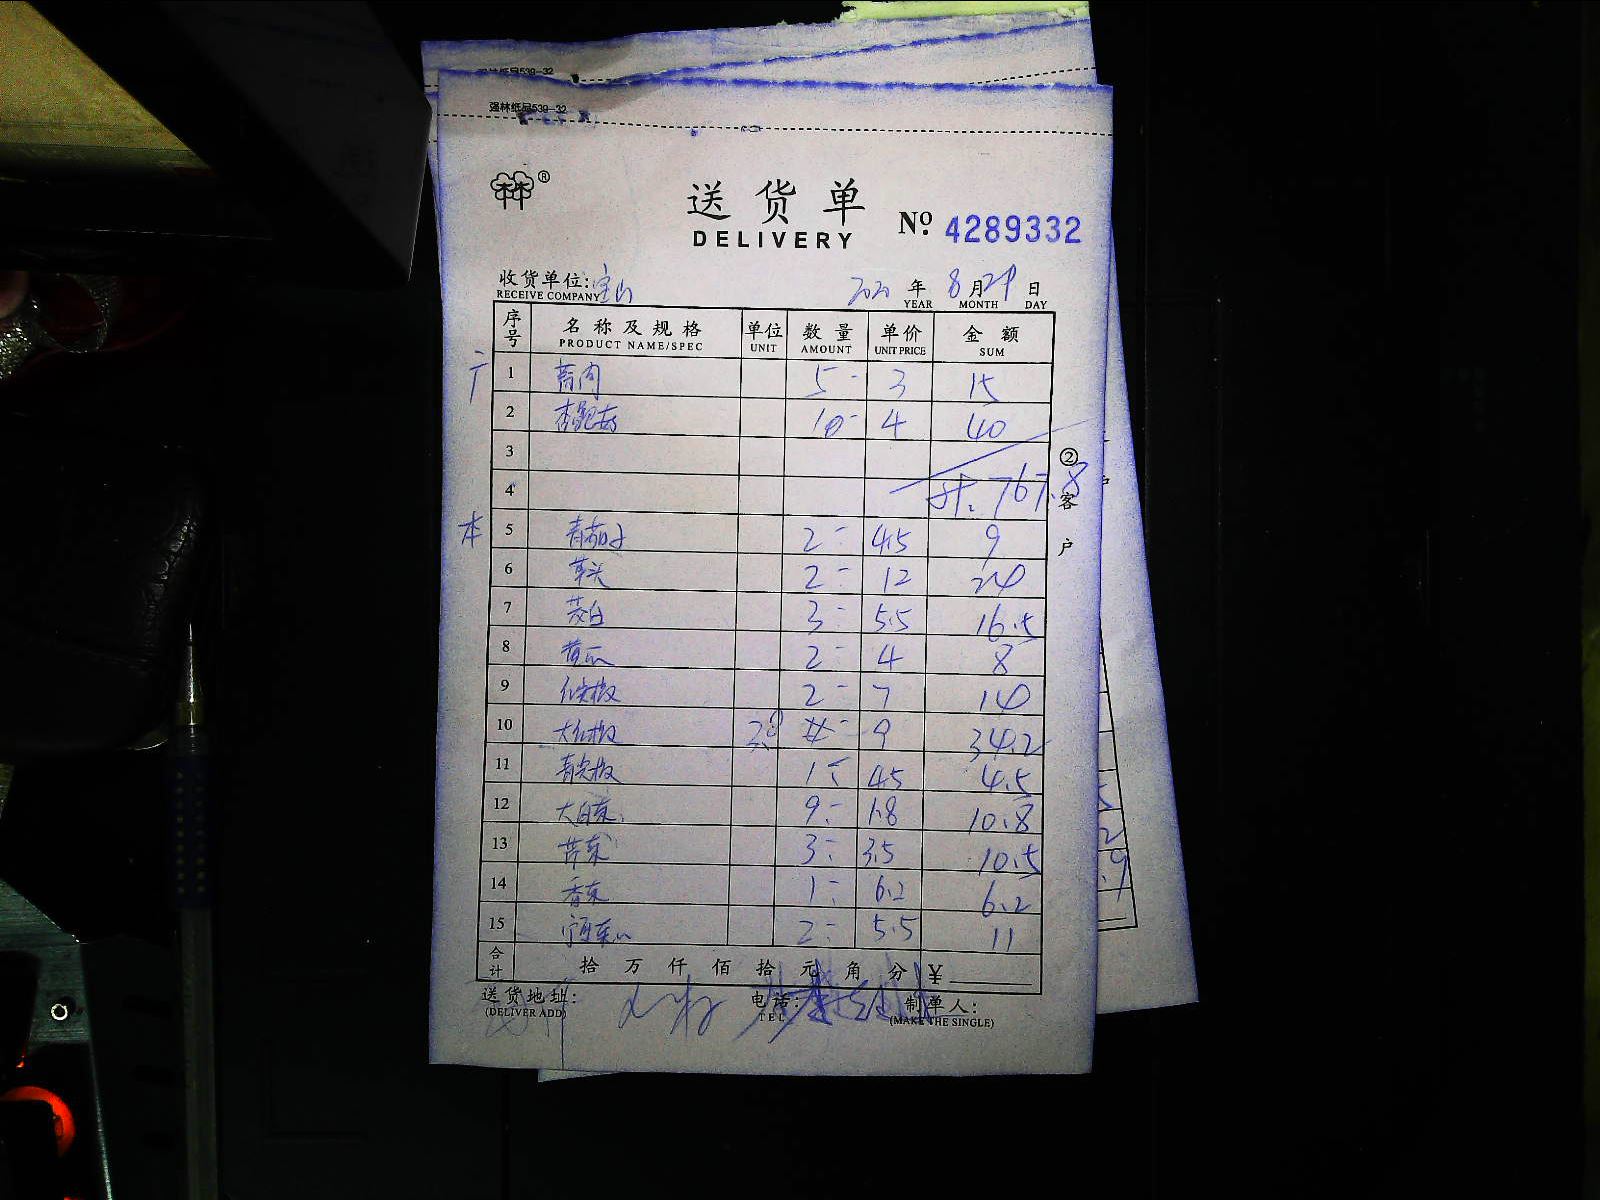 强林纸品539-32
强林纸品539-32
®
送货单 № 4289332
DELIVERY
收货单位: 宝山 2020 年 8 月 29 日
RECEIVE COMPANY YEAR MONTH DAY
序号 名称及规格 单位 数量 单价 金额
PRODUCT NAME/SPEC UNIT AMOUNT UNIT PRICE SUM
1 5- 3 15
2 杏鲍菇 10- 4 40
3
4 767.8
② 客户
本 5 青茄子 2- 4.5 9
6 草头 2- 12 24
7 茭白 3- 5.5 16.5
8 黄瓜 2- 4 8
9 2- 7 14
10 3.8 9 34.2
11 青尖椒 1- 4.5 4.5
12 大白菜 9- 1.8 10.8
13 芹菜 3- 3.5 10.5
14 香菜 1- 6.2 6.2
15 2- 5.5 11
合计 拾 万 仟 佰 拾 元 角 分 ¥
送货地址: 电话: 制单人:
(DELIVER ADD) TEL (MAKE THE SINGLE)